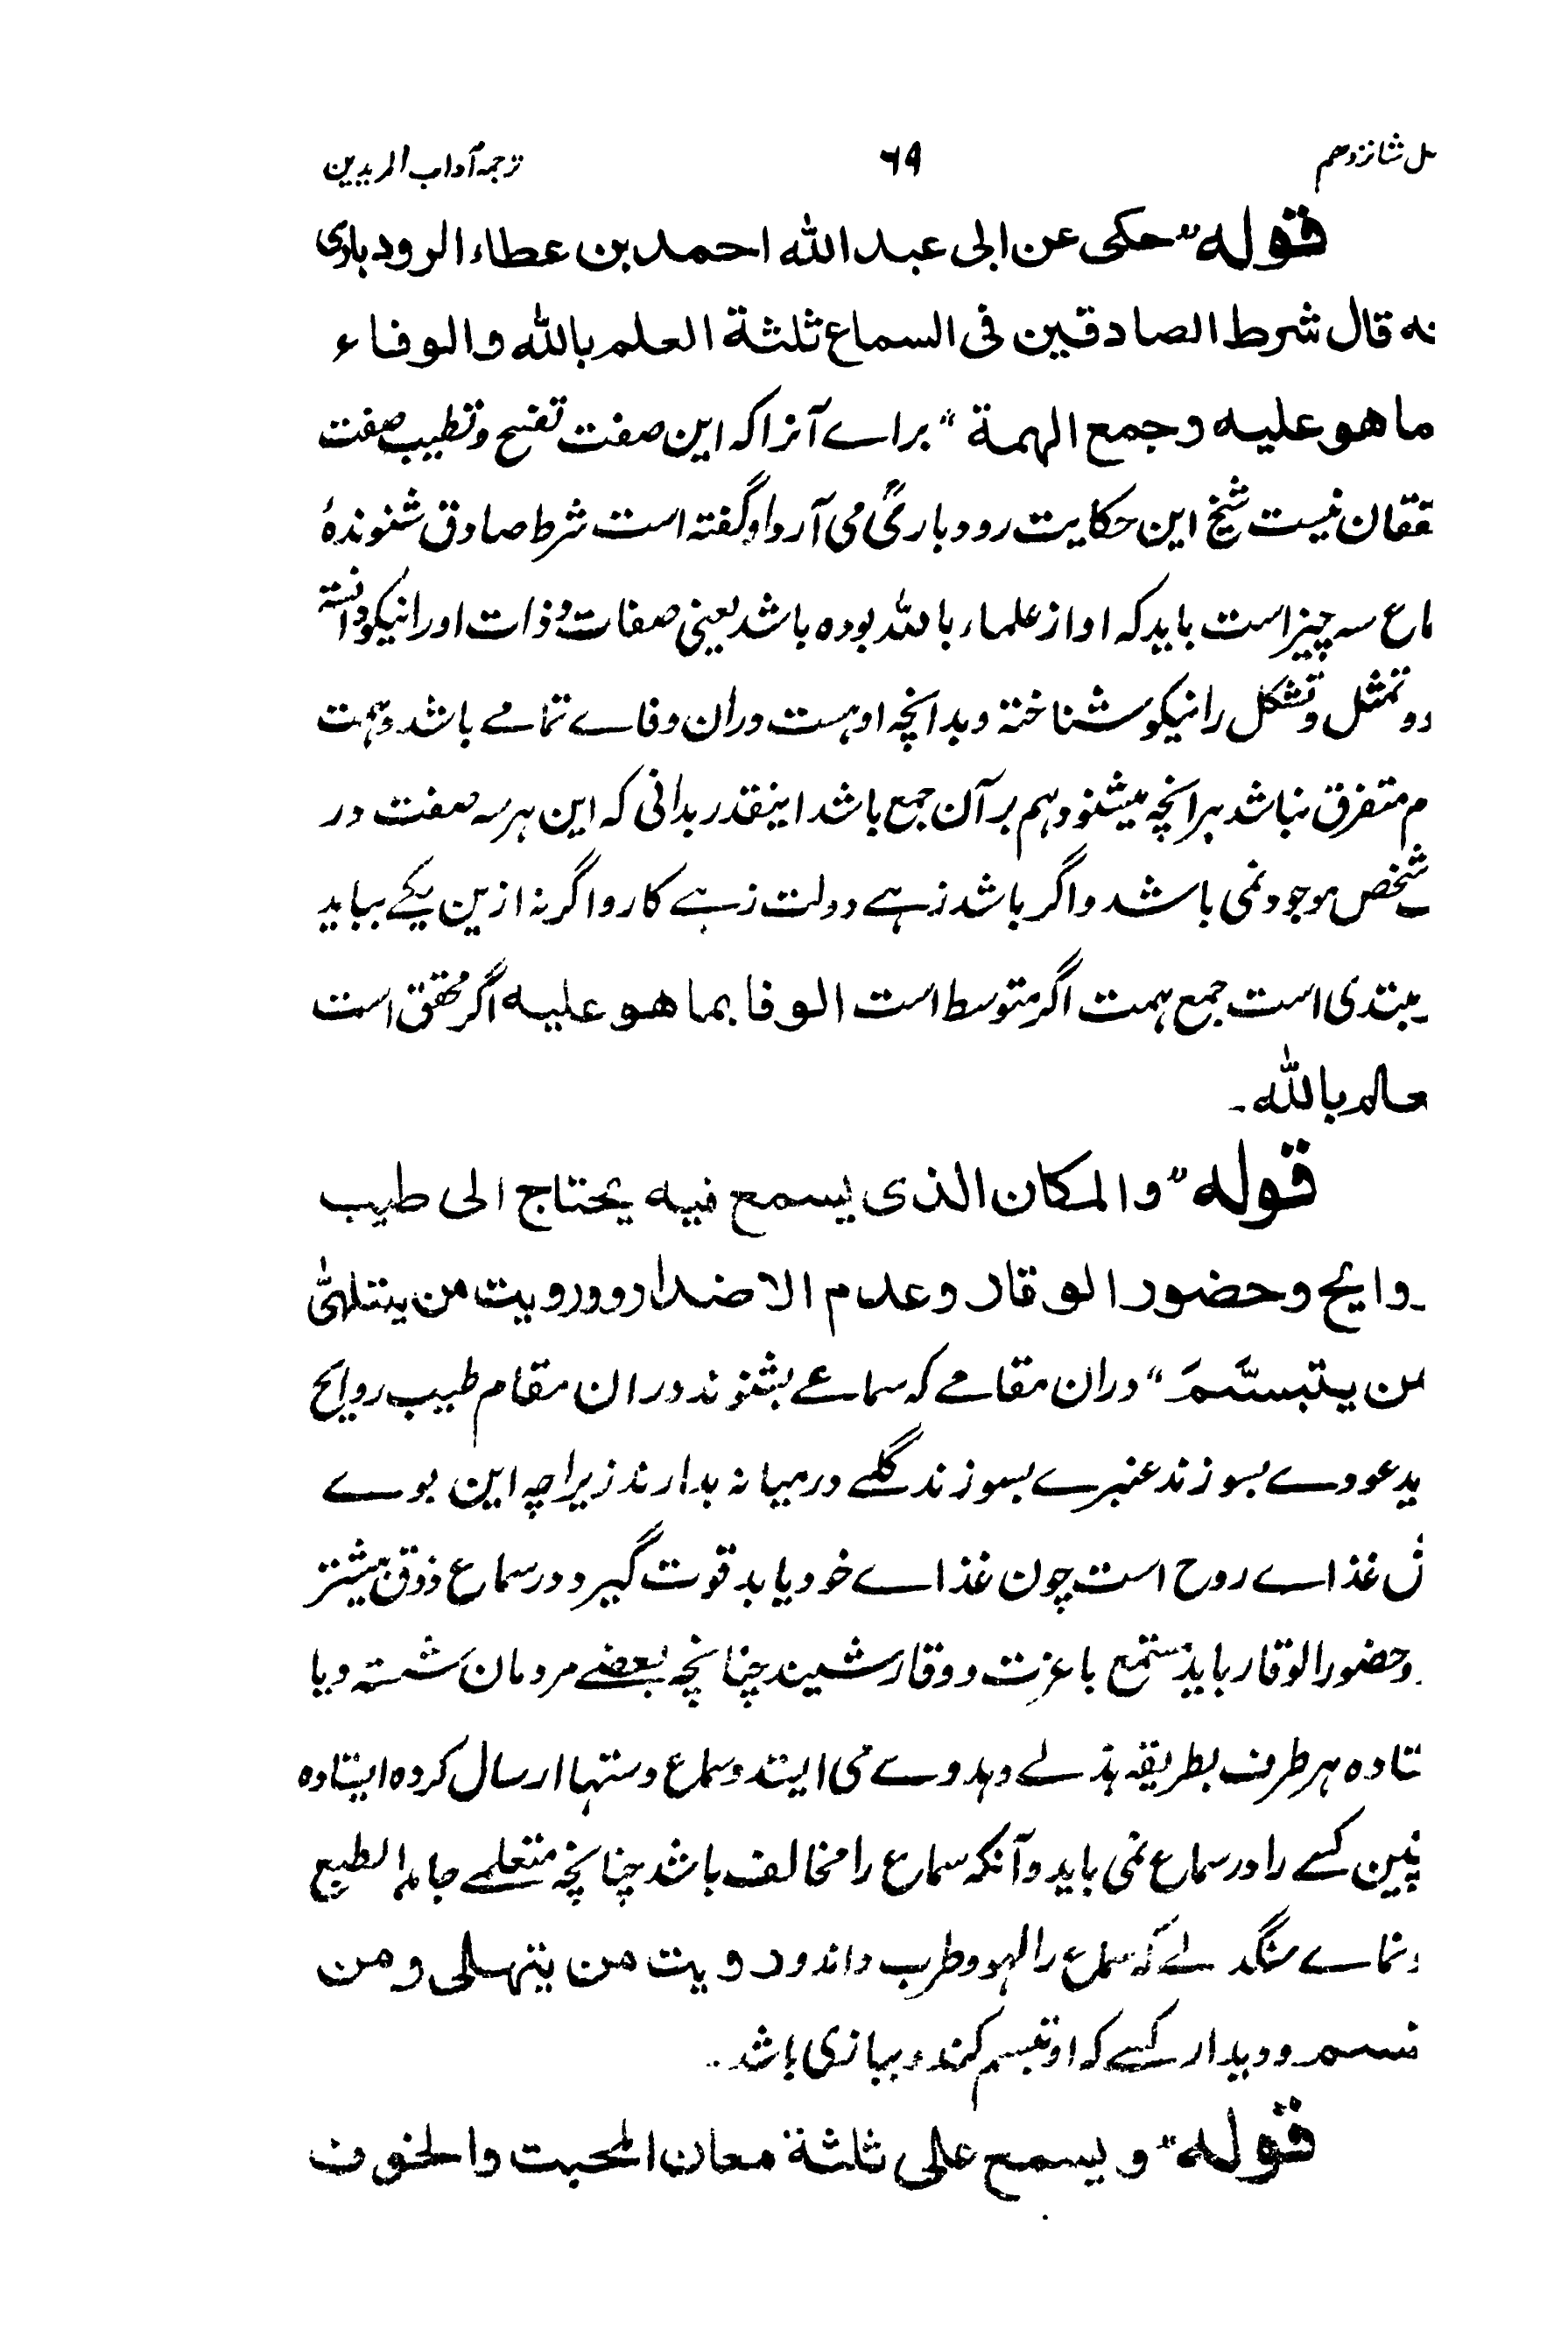 شانزدهم ۶۹ ترجمہ آداب المریدین
قوله "حکی عن ابی عبد الله احمد بن عطاء الرودباری
نه قال شرط الصادقین فی السماع ثلثة العلم بالله والوفاء
ما هو علیه وجمع الهمة" براے آنراکہ این صفت تفتیح وتطییب صفت
ققان نیست شیخ این حکایت رودباریؒ می آرد او گفتہ است شرط صادق شنوندۂ
ماع سہ چیز است باید کہ او از علماء باللہ بودہ باشد یعنی صفات و ذات او را نیکو دانستہ
و تمثل وتشکل را نیکو شناختہ وبدانچہ اوہست دران وفاے تمامے باشد وہمت
م متفرق نباشد ہرانچہ میشنود ہم برآن جمع باشد اینقدر بدانی کہ این ہر سہ صفت در
شخص موجود نمی باشد واگر باشد زہے دولت زہے کار واگر نہ ازین یکے بباید
مبتدی است جمع ہمت اگر متوسط است الوفا بما هو علیه اگر محقق است
عالم بالله۔
قوله "والمکان الذی یسمع فیه یحتاج الی طیب
روایح وحضور الوقار وعدم الاضداد ورویت من یتلهی
من یتبسّمَ" دران مقامے کہ سماعے بشنوند دران مقام طیب روایح
ید عودے بسوزند عنبرے بسوزند گلے درمیانہ بدارند زیراچہ این بوے
غذاے روح است چون غذاے خود یابد قوت گیرد و در سماع ذوق بیشتر
وحضور الوقار باید مستمع باعزت ووقار نشیند چنانچہ بعضے مردمان نشستہ ویا
تادہ ہر طرف بطریقہ ہذلے وہدوے می ایند وسماع دستہا ارسال کردہ ایستادہ
نین کسے را در سماع نمی باید وآنکہ سماع را مخالف باشد چنانچہ متعلمے جامد الطبع
نماے سنگدلے کہ سماع را لہو وطرب داند ورویت من یتهلی ومن
تبسم ودیدار کسے کہ او تبسم کند وببازی باشد۔
قوله "ویسمع علی ثلثة معان المحبت والخوف